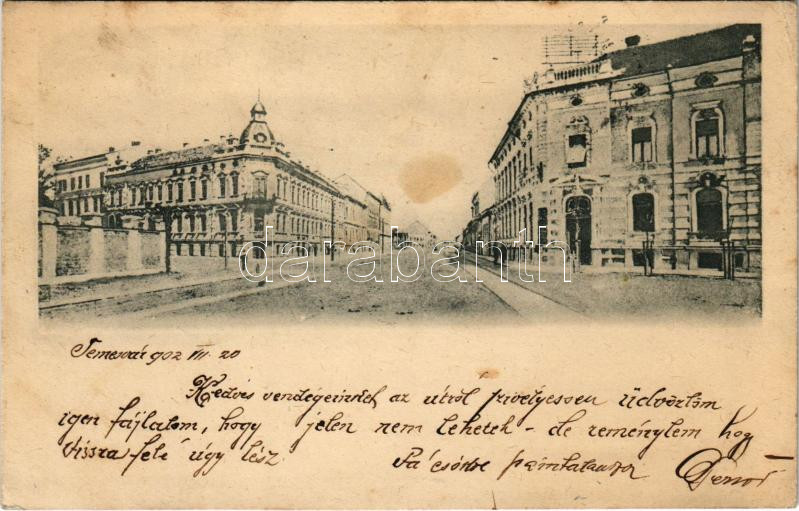 Temesvár 902 VII. 20
Kedves vendégeinket az útról szivélyesen üdvözlöm
igen fájlalom, hogy jelen nem lehetek - de reménylem hogy
Vissza felé úgy lesz.
darabanth
Jenő